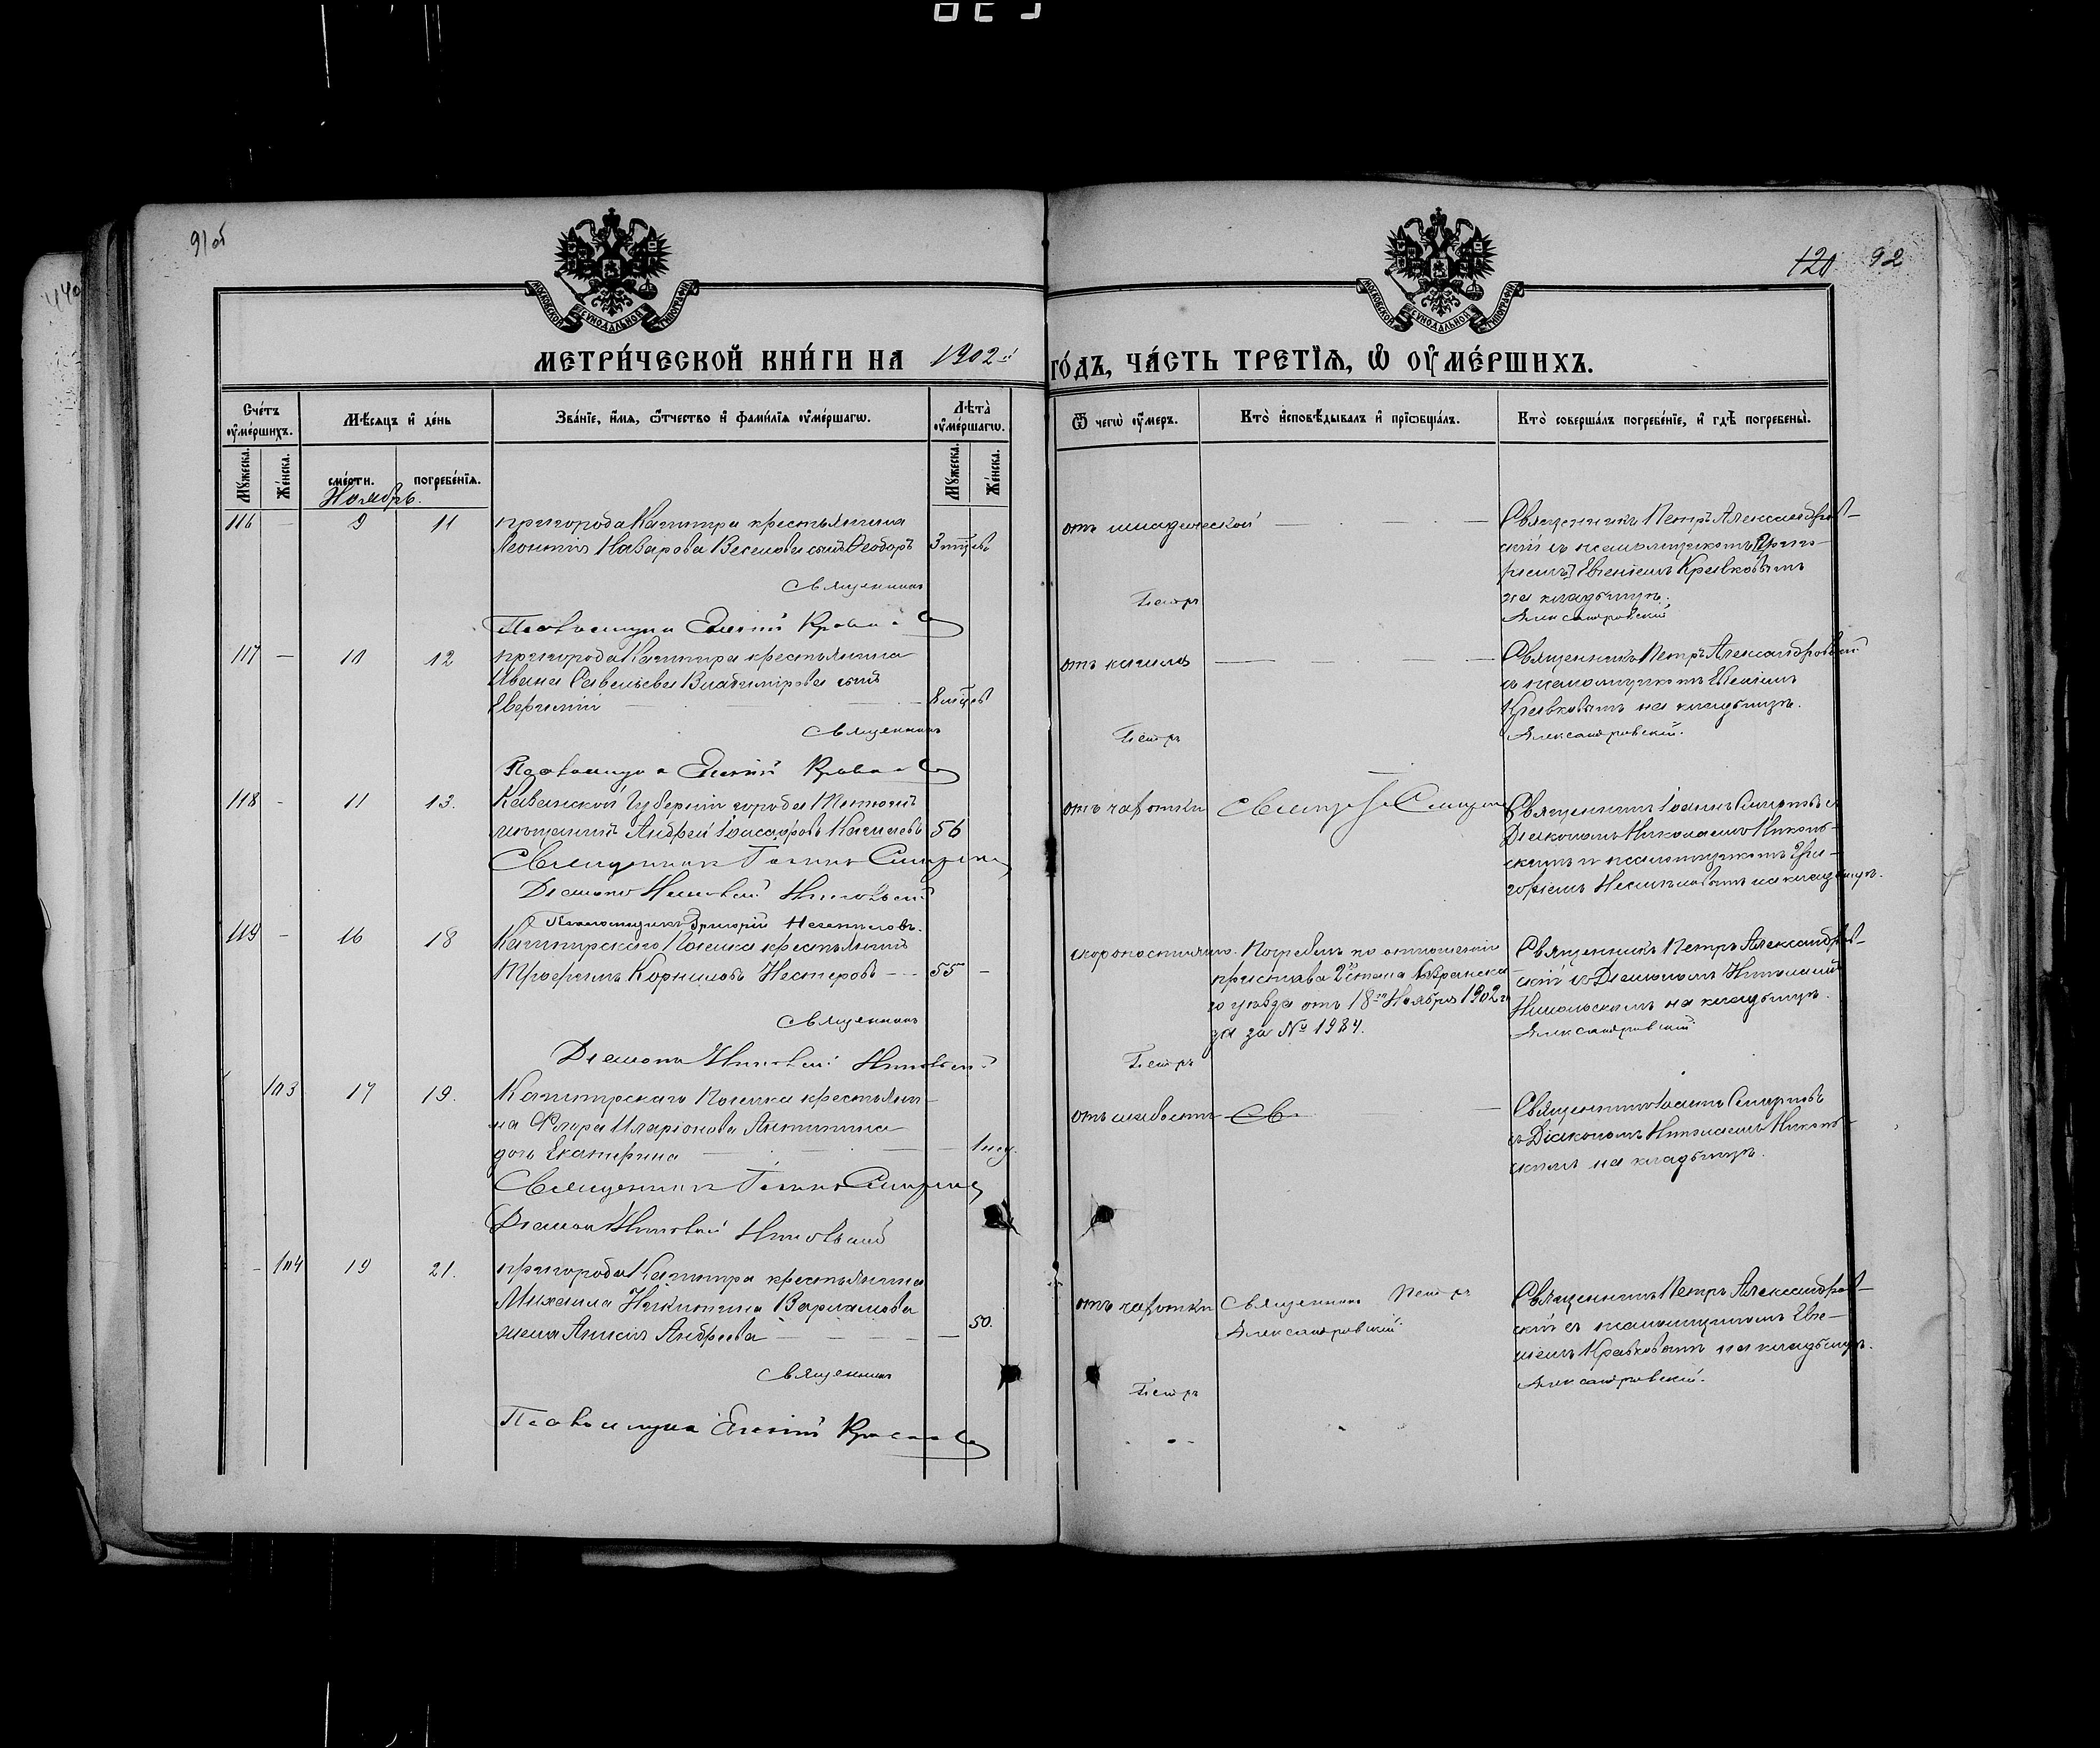 91об
120 92
МОСКОВСКОЙ СѴНОДАЛЬНОЙ ТИПОГРАФІИ
МОСКОВСКОЙ СѴНОДАЛЬНОЙ ТИПОГРАФІИ
МЕТРИ́ЧЕСКОЙ КНИ́ГИ НА 1902й ГО́ДЪ, ЧА́СТЬ ТРЕТІѦ, Ѡ ОУМЕ́РШИХЪ.
Сче́тъ оуме́ршихъ.
Мѣсяцъ и де́нь
Зва́ніе, и́мя, о́тчество и фами́лія оуме́ршагѡ.
Лѣта̀ оуме́ршагѡ.
Ѿ чегѡ̀ оу́меръ.
Кто̀ исповѣдывалъ и пріѡбща́лъ.
Кто̀ соверша́лъ погребе́ніе, и гдѣ̀ погребены̀.
Мꙋжеска. Же́нска.
сме́рти. погребе́нія.
Мꙋжеска. Же́нска.
Ноябрь.
116 — 9 11
пригорода Кашпира крестьянина
Леонтія Назарова Веселова сынъ Ѳеодоръ 3 мцевъ
от младенческой
Священникъ Петръ Александров-
скій съ псаломщикомъ [Григо-
ріемъ] Евгеніемъ Кравковымъ
на кладбищѣ.
Священникъ Петръ Александровскій
Псаломщикъ Евгеній Кравковъ
117 — 11 12
пригорода Кашпира крестьянина
Ивана Савельева Владимірова сынъ
Евфимій 8 мцевъ
отъ кашля
Священникъ Петръ Александровскій
съ псаломщикомъ Евгеніемъ
Кравковымъ на кладбищѣ.
Священникъ Петръ Александровскій.
Псаломщикъ Евгеній Кравковъ
118 - 11 13.
Казанской Губерніи города Тетюшъ
мѣщанинъ Андрей Іоасафовъ Капилевъ 56
отъ чахотки
Священникъ Іоаннъ Смирновъ съ
Діакономъ Николаемъ Николь-
скимъ и псаломщикомъ Гри-
горіемъ Несмѣловымъ на кладбищѣ.
Священникъ Іоаннъ Смирновъ
Діаконъ Николай Никольскій
Псаломщикъ Григорій Несмѣловъ.
119 - 16 18
Кашпирскаго Поселка крестьянинъ
Трофимъ Корниловъ Нестеровъ — 55 —
скоропостижно. Погребенъ по отношенію
пристава 2го стана Сызранска-
го уѣзда отъ 18го Ноября 1902 го-
да за № 1984.
Священникъ Петръ Александров-
скій съ Діакономъ Николаемъ
Никольскимъ на кладбищѣ.
Священникъ Петръ Александровскій.
Діаконъ Николай Никольскій
103 17 19.
Кашпирскаго Поселка крестьяни-
на Флора Иларіонова Антипина
дочь Екатерина 1 нед.
отъ слабости Св.
Священникъ Іоаннъ Смирновъ
съ Діакономъ Николаемъ Николь-
скимъ на кладбищѣ.
Священникъ Іоаннъ Смирновъ
Діаконъ Николай Никольскій
- 104 19 21.
пригорода Кашпира крестьянина
Михаила Никитина Варламова
жена Анисія Андреева — 50.
отъ чахотки
Священникъ Петръ
Александровскій.
Священникъ Петръ Александров-
скій съ псаломщикомъ Евге-
ніемъ Кравковымъ на кладбищѣ.
Священникъ Петръ Александровскій.
Псаломщикъ Евгеній Кравковъ